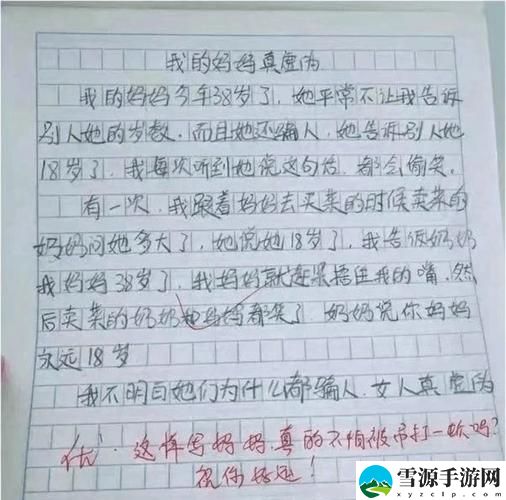 我的妈妈真虚伪
我的妈妈今年38岁了，她平常不让我告诉
别人她的岁数，而且她还骗人，她告诉别人她
18岁了，我每次听到她说这句话，都会偷笑。
有一次，我跟着妈妈去买菜的时候卖菜的
奶奶问她多大了，她说她18岁了，我告诉奶奶
我妈妈38岁了，我妈妈就赶紧捂住我的嘴，然
后卖菜的奶奶和妈妈都笑了，奶奶说你妈妈
永远18岁
我不明白她们为什么都骗人，女人真虚伪
优，这样写妈妈真的不怕被吊打一顿吗？
祝你好运！
雪源手游网
www.xyzclp.com